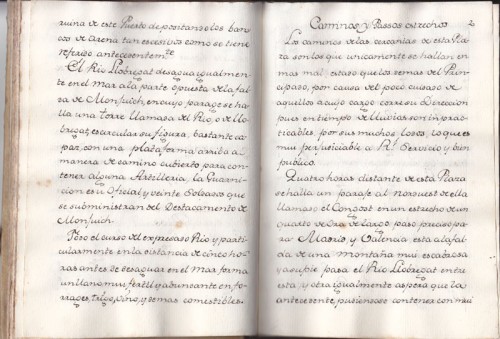 ruina de este Puerto depositanso los ban
cos de Arena tan escesivos como se tiene
referido antecedentemte
El Rio Llobregat desagua igualmen
te en el Mar ala parte opuesta de la fal
da de Monjuich, en cuyo parage se ha
lla una Torre llamada del Rio, o de llo
bregat, es circular su figura, bastante ca
paz, con una plataforma arriba a
manera de camino cubierto para con
tener alguna Artilleria, la Guarni
cion es un Oficial y veinte Soldados que
se subministran del Destacamento de
Monjuich.
Todo el curso del expresado Rio, y parti
cularmente en la distancia de cinco ho
ras antes de desaguar en el Mar forma
un llano mui fertil y abundante en for
rages, trigo, vino, y demas comestibles.
Caminos y Passos estrechos 2
Los caminos de las cercanias de esta Pla
za son los que unicamente se hallan en
mas mal estado que los demas del Prin
cipado, por causa del poco cuidado de
aquellos a cuyo cargo corre su Direccion
pues en tiempo de lluvias son imprac
ticables, por sus muchos lodos, lo que es
mui perjudicial a Rl. Servicio y bien
publico.
Quatro horas distante de esta Plaza
se halla un parage al Norouest de ella
llamado el Congost en un estrecho de un
quarto de ora de largo, paso preciso pa
ra Madrid, y Valencia esta a la fal
da de una montaña mui escabrosa
y a su pie pasa el Rio Llobregat entre
esta y otra igualmente aspera que la
antecedente, pudiendose contener con mui